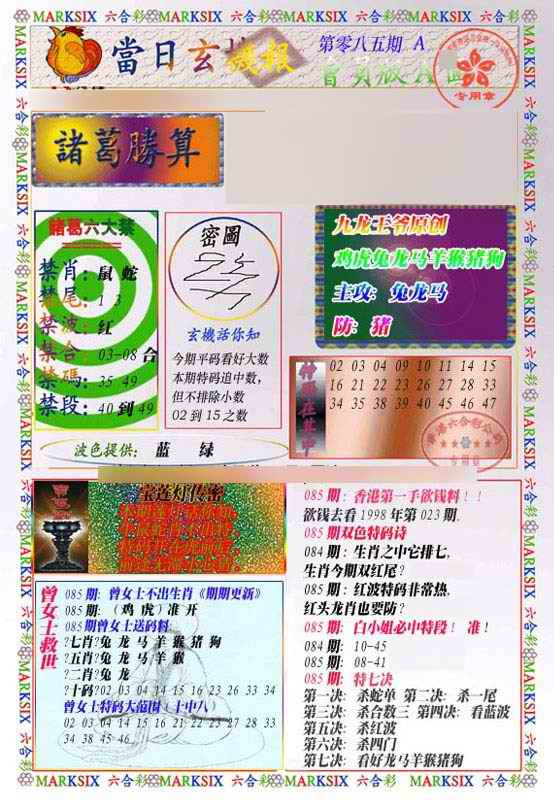 MARKSIX 六合彩 MARKSIX 六合彩 MARKSIX 六合彩 MARKSIX 六合彩
當日玄機報
第零八五期 A
會員版A面
专用章
諸葛勝算
諸葛六大禁
禁肖: 鼠 蛇
禁尾: 1 3
禁波: 红
禁合: 03-08 合
禁碼: 35 49
禁段: 40 到 49
密圖
玄機話你知
今期平码看好大数
本期特码追中数,
但不排除小数
02 到 15 之数
九龙王爷原创
鸡虎兔龙马羊猴猪狗
主攻: 兔龙马
防: 猪
02 03 04 09 10 11 14 15
16 21 22 23 26 27 28 33
34 35 38 39 40 45 46 47
波色提供: 蓝 绿
宝莲灯传密
曾女士救世
085 期: 曾女士不出生肖《期期更新》
085 期: (鸡 虎) 准 开
085 期曾女士送码料:
?七肖?兔 龙 马 羊 猴 猪 狗
?五肖?兔 龙 马 羊 猴
?二肖?兔 龙
?十码?02 03 04 14 15 16 23 26 33 34
曾女士特码大范围 (十中八)
02 03 04 14 15 16 21 22 23 27 28 33
34 38 45 46
085 期: 香港第一手欲钱料!!
欲钱去看 1998 年第 023 期.
085 期双色特码诗
084 期: 生肖之中它排七,
生肖今期双红尾?
085 期: 红波特码非常热,
红头龙肖也要防?
085 期: 白小姐必中特段! 准!
084 期: 10-45
085 期: 08-41
085 期: 特七决
第一决: 杀蛇单 第二决: 杀一尾
第三决: 杀合数三 第四决: 看蓝波
第五决: 杀红波
第六决: 杀四门
第七决: 看好龙马羊猴猪狗
MARKSIX 六合彩 MARKSIX 六合彩 MARKSIX 六合彩 MARKSIX 六合彩